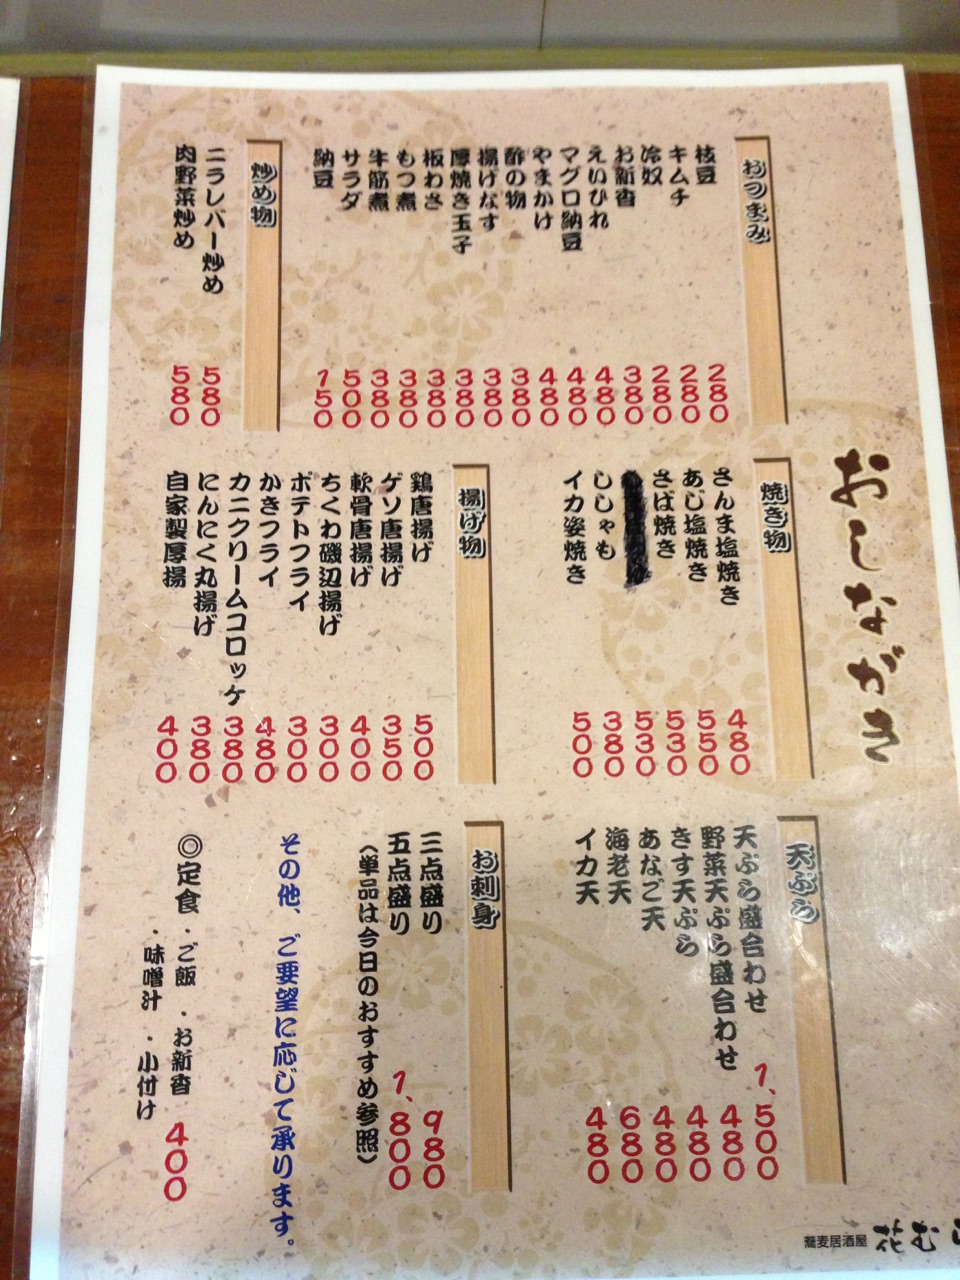 おしながき
おつまみ
枝豆 280
キムチ 280
冷奴 280
お新香 380
えいひれ 480
マグロ納豆 480
やまかけ 480
酢の物 380
揚げなす 380
厚焼き玉子 380
板わさ 380
もつ煮 380
牛筋煮 380
サラダ 500
納豆 150
炒め物
ニラレバー炒め 580
肉野菜炒め 580
焼き物
さんま塩焼き 480
あじ塩焼き 550
さば焼き 530
530
ししゃも 380
イカ姿焼き 500
揚げ物
鶏唐揚げ 500
ゲソ唐揚げ 350
軟骨唐揚げ 400
ちくわ磯辺揚げ 300
ポテトフライ 300
かきフライ 480
カニクリームコロッケ 380
にんにく丸揚げ 380
自家製厚揚 400
天ぷら
天ぷら盛合わせ 1,500
野菜天ぷら盛合わせ 480
きす天ぷら 480
あなご天 480
海老天 680
イカ天 480
お刺身
三点盛り 980
五点盛り 1,800
(単品は今日のおすすめ参照)
その他、ご要望に応じて承ります。
◎定食 ・ご飯 ・お新香 400
・味噌汁 ・小付け
蕎麦居酒屋 花む